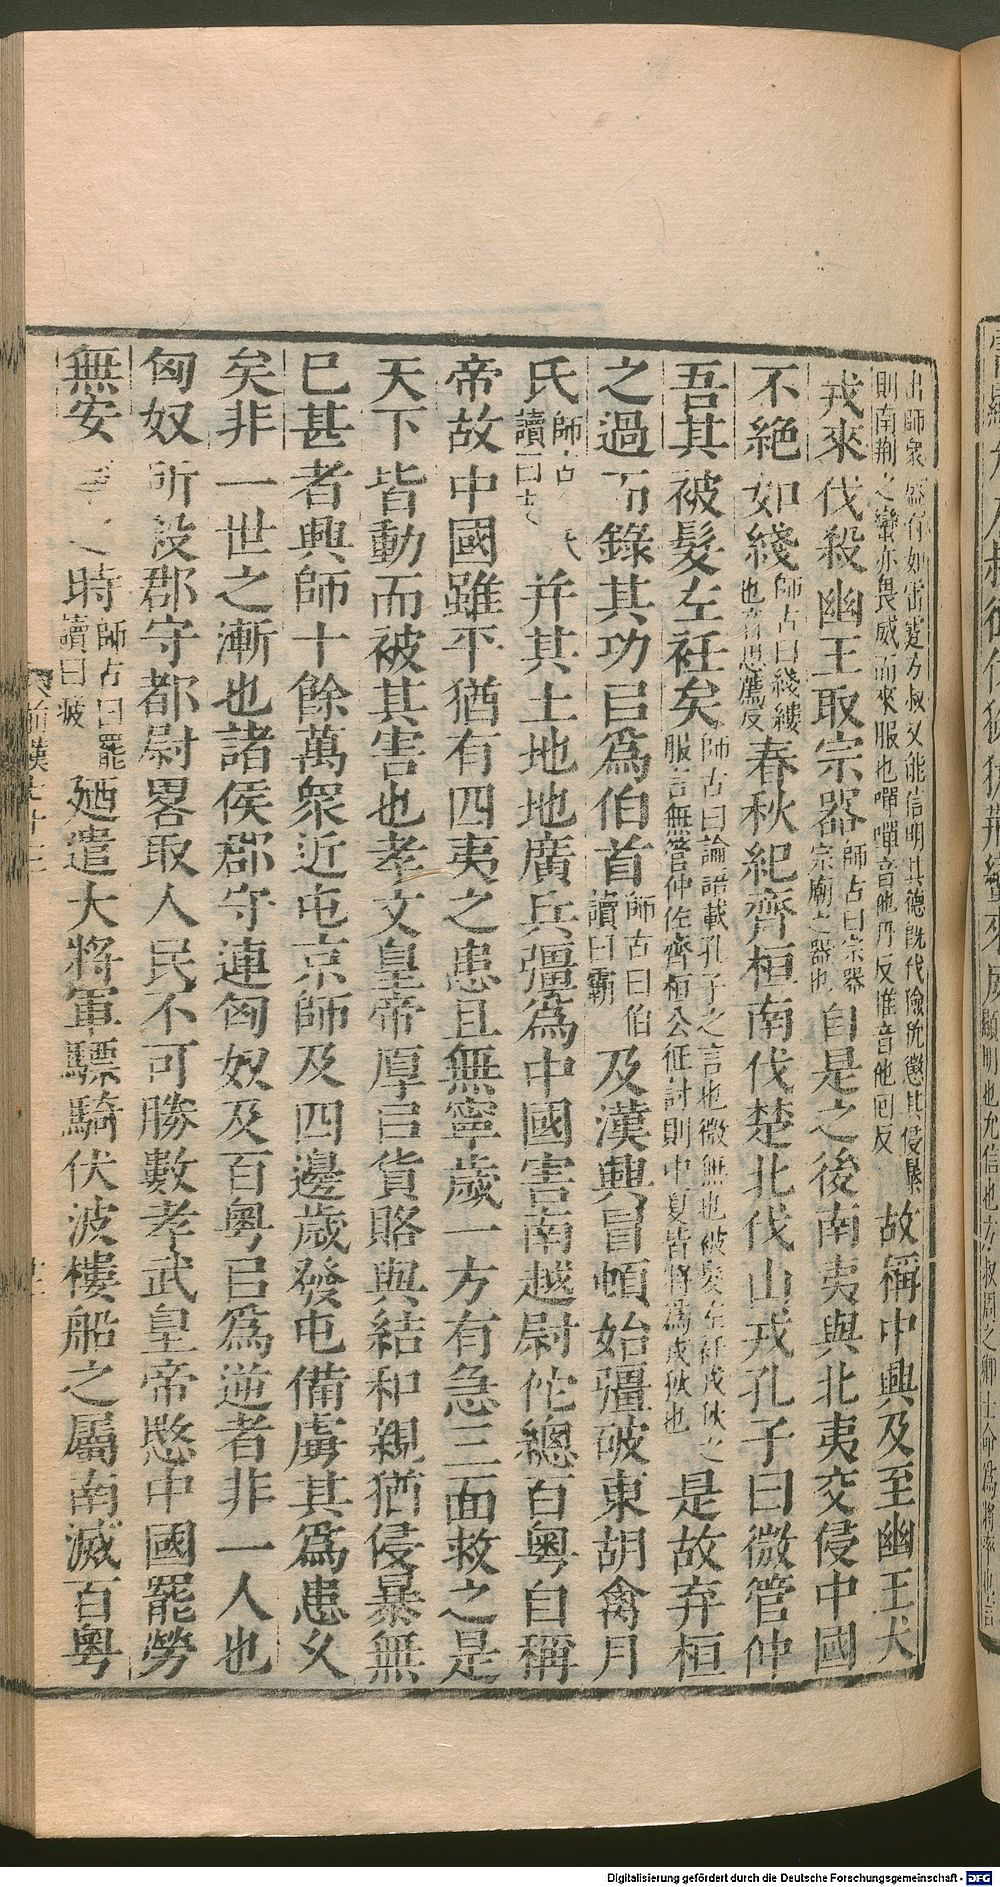 出師衆盛有如雷霆方叔又能信明其德旣伐險狁懲其侵暴
則南荆之蠻亦畏威而來服也嘽嘽音他丹反推音他回反 故稱中興及至幽王犬
戎來伐殺幽王取宗器師古曰宗器宗廟之器也自是之後南夷與北夷交侵中國
不絕如綫師古曰綫縷也音思薦反春秋紀齊桓南伐楚北伐山戎孔子曰微管仲
吾其被髮左衽矣師古曰論語載孔子之言也微無也被髮左衽戎狄之服言無管仲佐齊桓公征討則中夏皆將爲戎狄也是故弃桓
之過而錄其功㠯爲伯首師古曰伯讀曰霸及漢興冒頓始彊破東胡禽月
氏師古讀曰支并其土地地廣兵彊爲中國害南越尉佗總百粵自稱
帝故中國雖平猶有四夷之患且無寧歲一方有急三面救之是
天下皆動而被其害也孝文皇帝厚㠯貨賂與結和親猶侵暴無
已甚者興師十餘萬衆近屯京師及四邊歲發屯備虜其爲患久
矣非一世之漸也諸侯郡守連匈奴及百粵㠯爲逆者非一人也
匈奴所殺郡守都尉畧取人民不可勝數孝武皇帝愍中國罷勞
無安之時師古曰罷讀曰疲廼遣大將軍驃騎伏波樓船之屬南滅百粵
前漢七十三
顯明也允信也方叔周之卿士命爲將率也
Digitalisierung gefördert durch die Deutsche Forschungsgemeinschaft - DFG